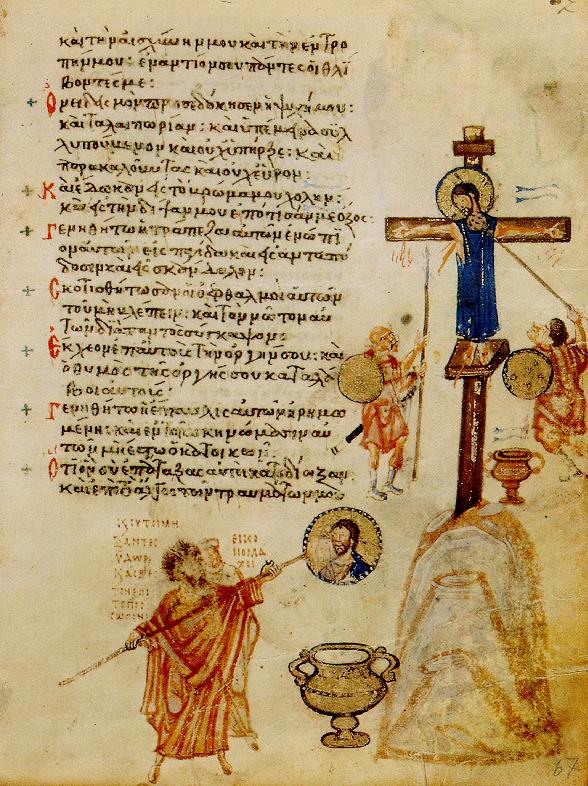 καὶ τὴν αἰσχύνην μου καὶ τὴν ἐντρο
πήν μου: ἐναντίον σου πάντες οἱ θλί
βοντές με:
Ὀνειδισμὸν προσεδόκησεν ἡ ψυχή μου:
καὶ ταλαιπωρίαν: καὶ ὑπέμεινα συλ
λυπούμενον καὶ οὐχ ὑπῆρξε: καὶ
παρακαλοῦντας καὶ οὐχ εὗρον:
Καὶ ἔδωκαν εἰς τὸ βρῶμά μου χολήν:
καὶ εἰς τὴν δίψαν μου ἐπότισάν με ὄξος:
Γενηθήτω ἡ τράπεζα αὐτῶν ἐνώπι
ον αὐτῶν εἰς παγίδα καὶ εἰς ἀνταπό
δοσιν καὶ εἰς σκάνδαλον:
Σκοτισθήτωσαν οἱ ὀφθαλμοὶ αὐτῶν
τοῦ μὴ βλέπειν: καὶ τὸν νῶτον αὐ
τῶν διὰ παντὸς σύγκαμψον:
Ἔκχεον ἐπ' αὐτοὺς τὴν ὀργήν σου: καὶ
ὁ θυμὸς τῆς ὀργῆς σου καταλά
βοι αὐτούς:
Γενηθήτω ἡ ἔπαυλις αὐτῶν ἠρημω
μένη: καὶ ἐν τοῖς σκηνώμασιν αὐ
τῶν μὴ ἔστω ὁ κατοικῶν:
Ὅτι ὃν σὺ ἐπάταξας αὐτοὶ κατεδίωξαν:
καὶ ἐπὶ τὸ ἄλγος τῶν τραυμάτων μου
ΕΙΚΟ
ΝΟΜΑ
ΧΟΙ
ΥΔΩΡ
67